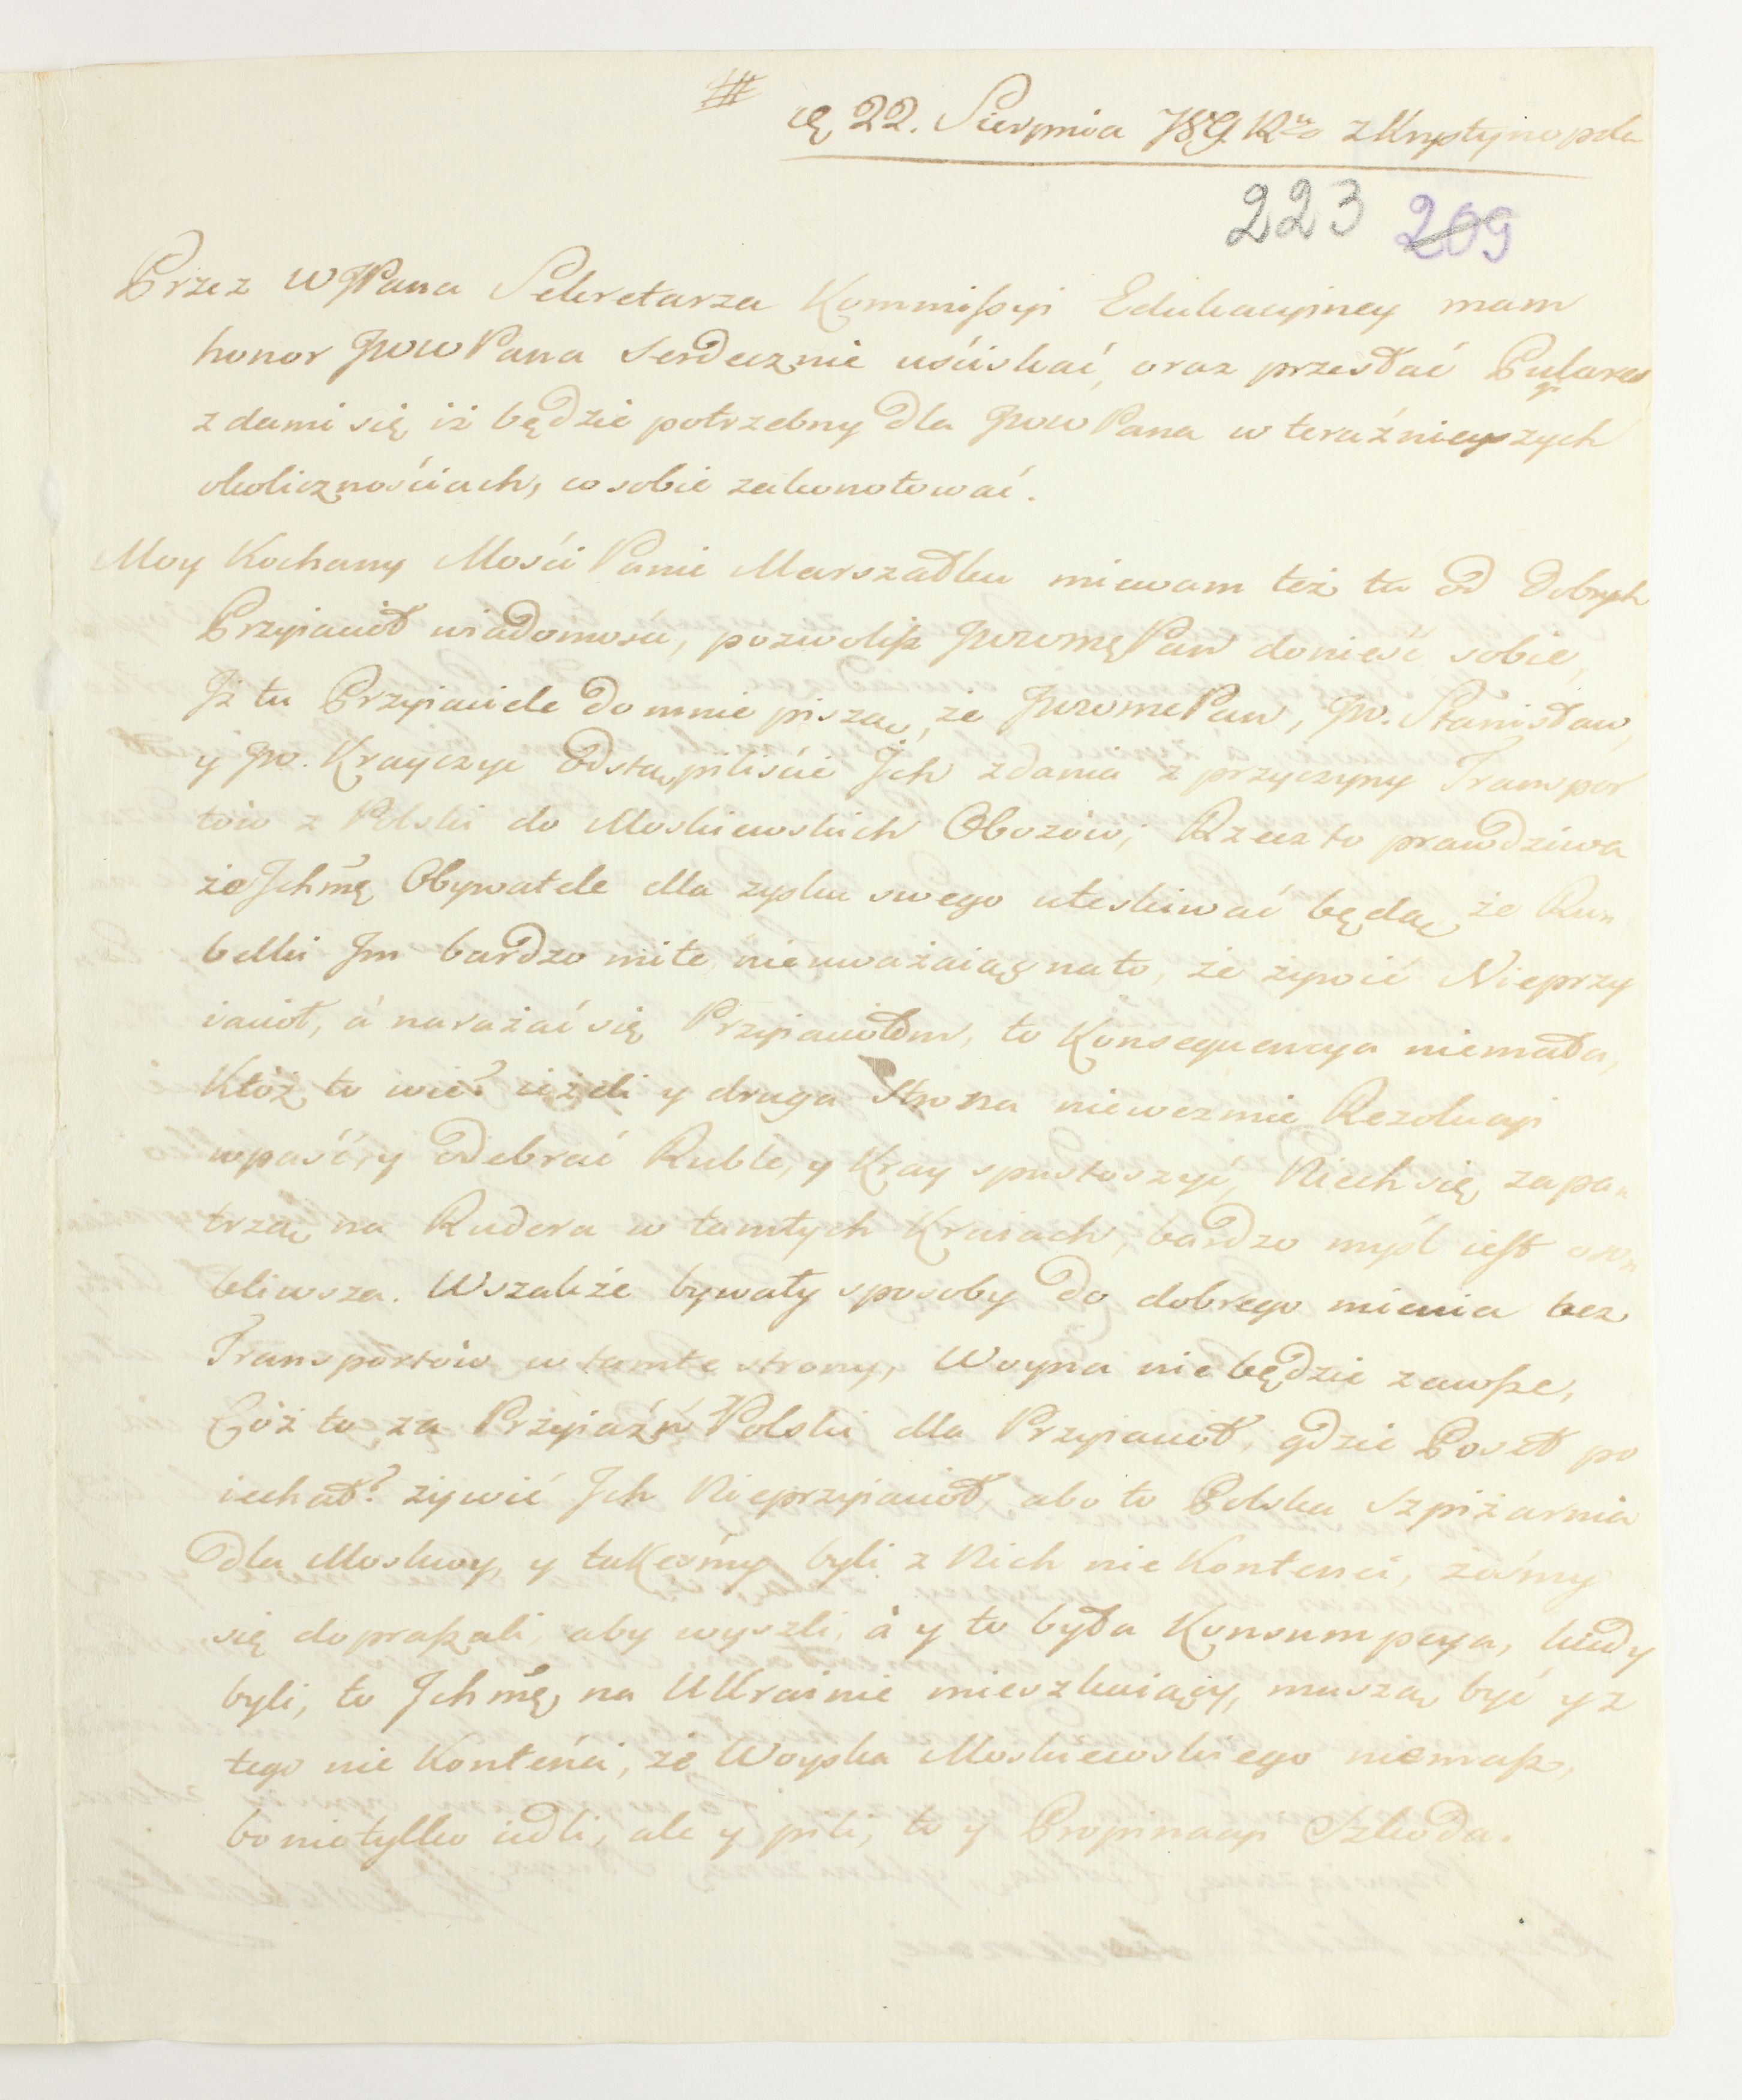 22. Sierpnia 789 R° z Krystynopola
223 209
Przez WJPana Sekretarza Kommißyi Edukacyiney mam
honor JWW Pana serdecznie uściskać, oraz przesłać Pulares
zdami się iż będzie potrzebny dla JWW Pana w teraźnieyszych
okolicznościach, co sobie zakonotować.
Moy Kochany Mości Panie Marszałku miewam też tu od Dobrych
Przyiaciół wiadomości, pozwolisz JWWMę Pan donieść sobie,
Jż tu Przyiaciele do mnie piszą, że JWWMć Pan, JW. Stanisław,
y JW. Krayczyc odstąpiliście Jch zdania z przyczyny Transpor
tów z Polski do Moskiewskich Obozów, Rzecz to prawdziwa
że Jchmę Obywatele dla zysku swego uteskiwać będą, że Ru
belki Jm bardzo miłe, nieuważaiąc na to, że żywić Nieprzy
iaciół, á narażać się Przyiaciołom, to Konsequencya niemała,
Któż to wie? ieżeli y druga Strona niewezmie Rezolucyi
wpaść, y odebrać Ruble, y Kray spustoszyć, Niech się zapa
trzą na Rudera w tamtych Kraiach, bardzo myśl iest
bliwsza. Wszakże bywały sposoby do dobrego mienia bez
Transportów w tamte strony, Woyna nie będzie zawsze,
Cóż to za Przyiaźń Polski dla Przyiaciół, gdzie Poszt po
iechał? żywić Jch Nieprzyiaciół, abo to Polska Szpiżarnia
dla Moskwy, y takeśmy byli z Nich nie Kontenci, żeśmy
się dopraszali, aby wyszli, á y to była Konsumpcya, kiedy
byli, to Jchmę na UKrainie mieszkaiący, muszą być y z
tego nie Kontenći, że Woyska Moskiewskiego niemasz,
bo nie tylko iedli, ale y pili, to y Propinacyi Szkoda.